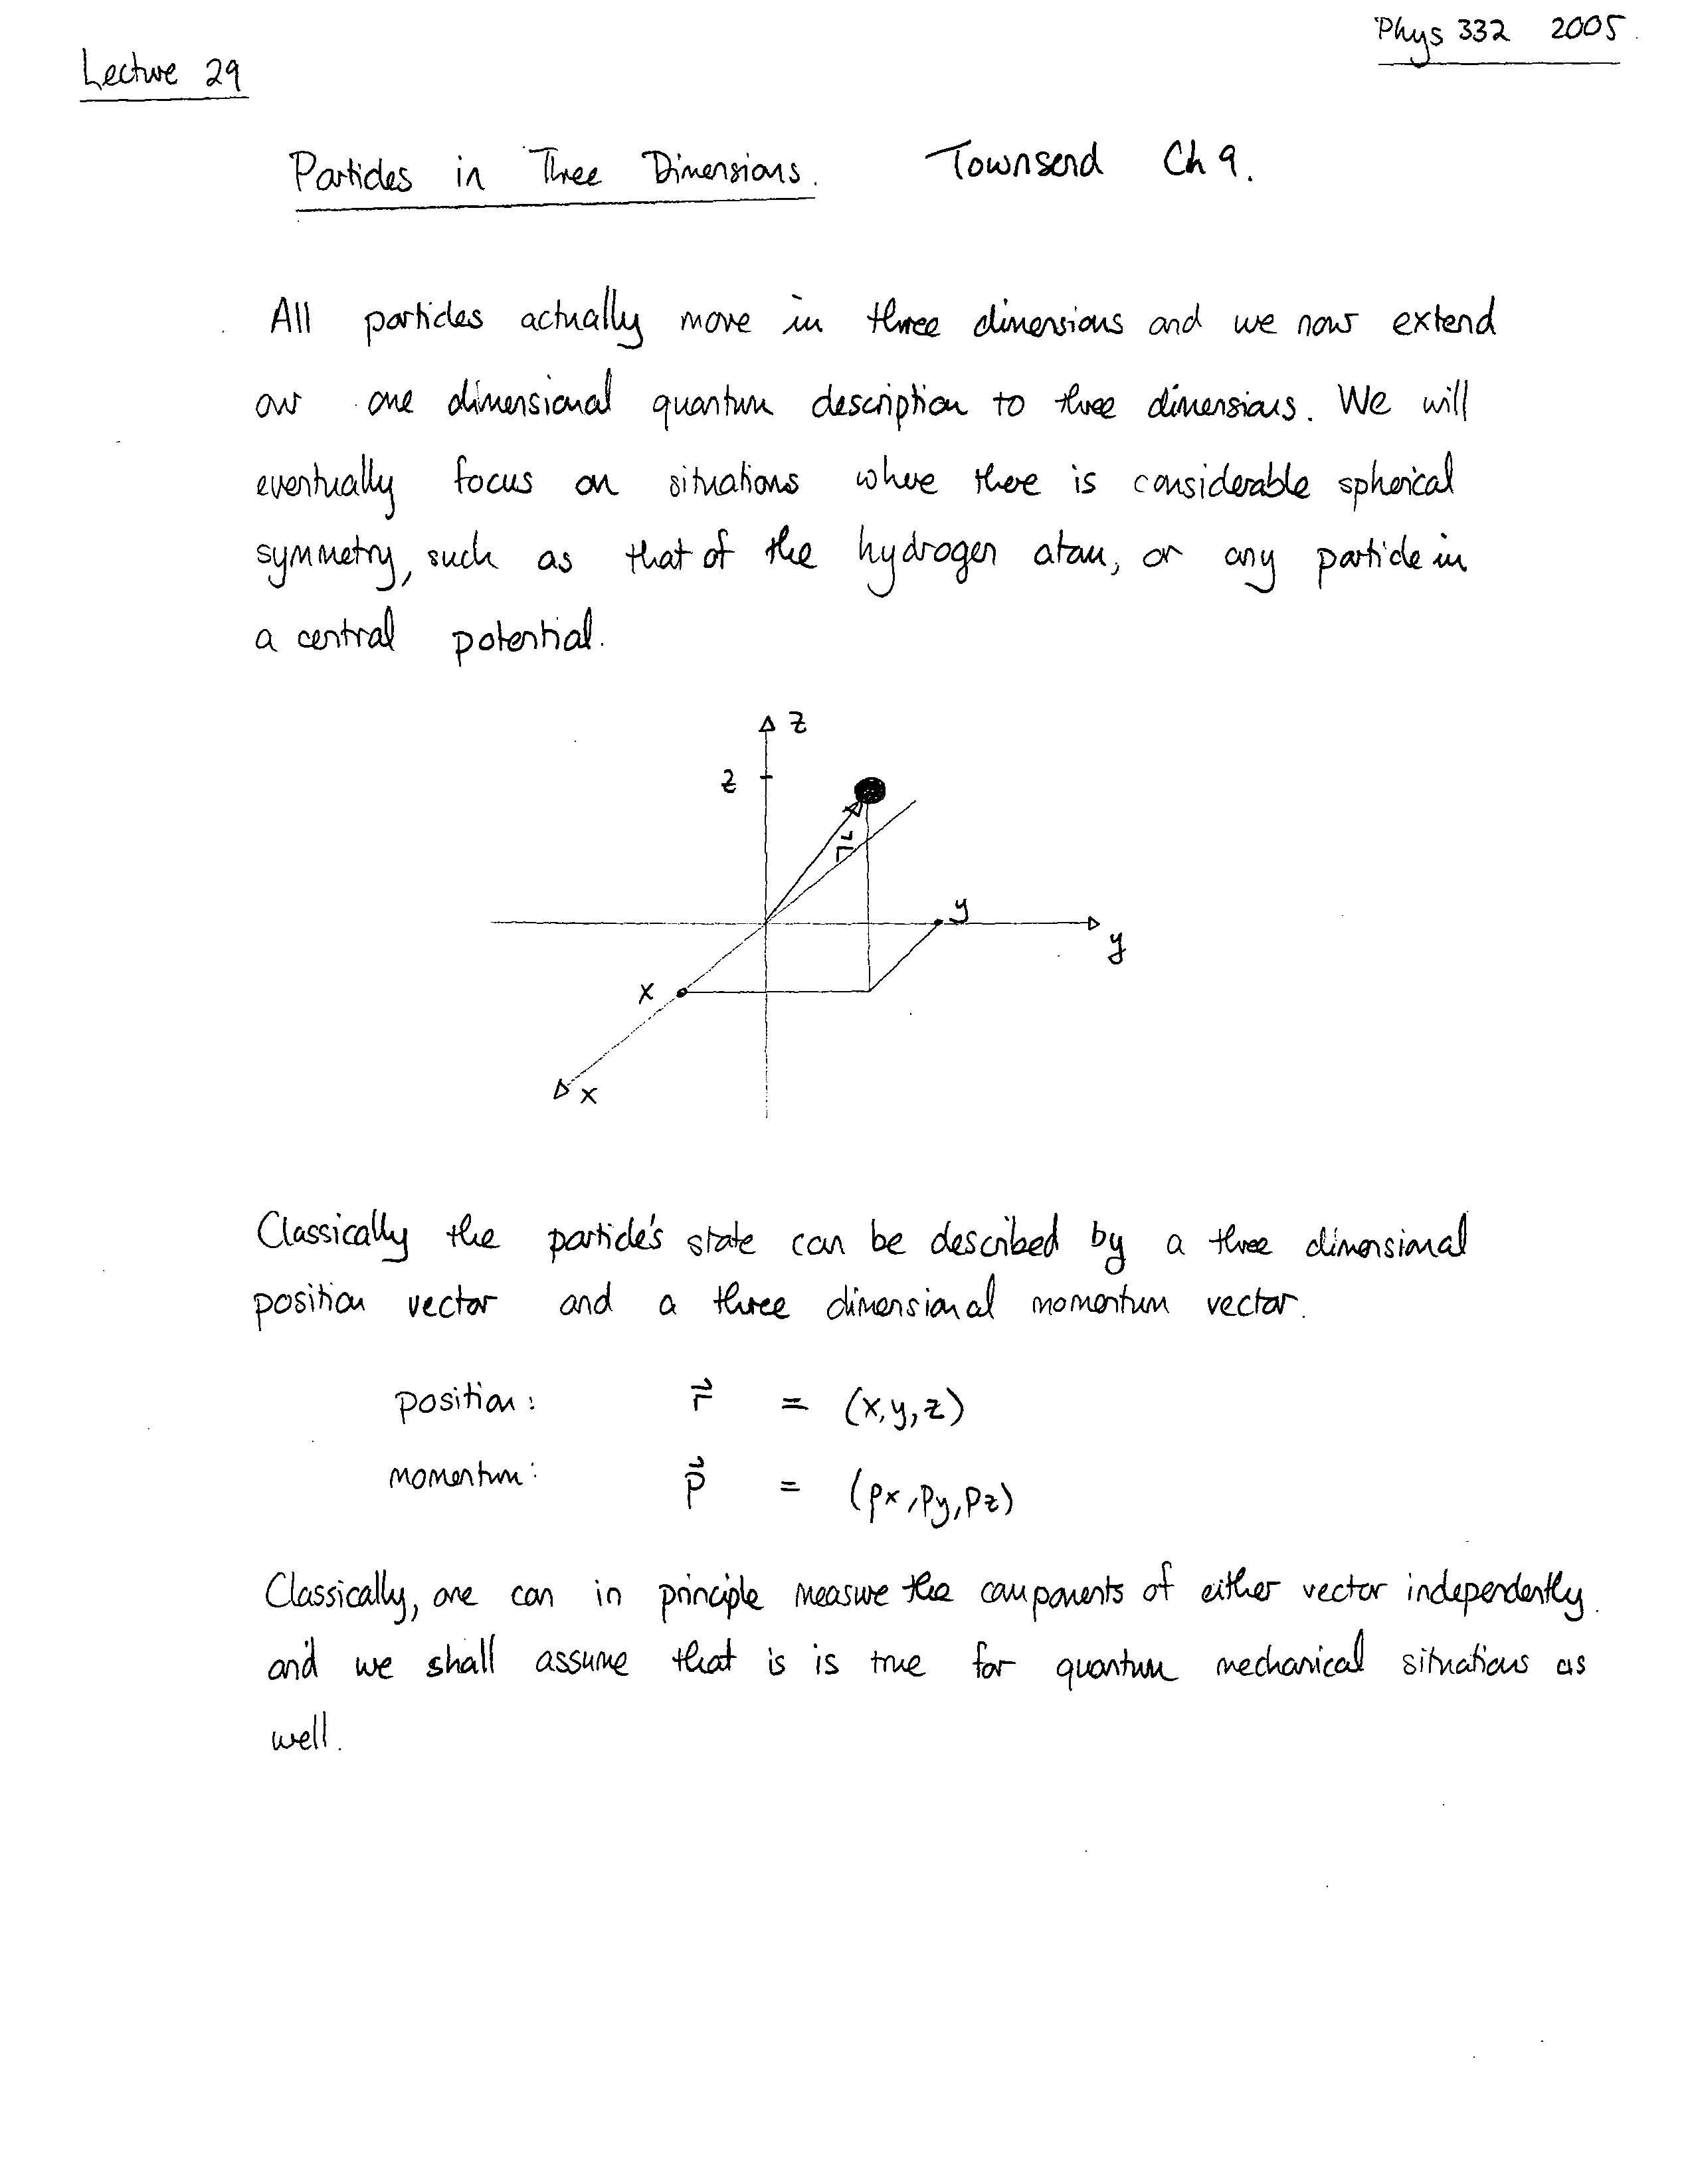 Phys 332 2005.
Lecture 29
Particles in Three Dimensions. Townsend Ch 9.
All particles actually move in three dimensions and we now extend
our one dimensional quantum description to three dimensions. We will
eventually focus on situations where there is considerable spherical
symmetry, such as that of the hydrogen atom, or any particle in
a central potential.
z
z
r⃗
y
y
x
x
Classically the particle's state can be described by a three dimensional
position vector and a three dimensional momentum vector.
position: r⃗ = (x, y, z)
momentum: p⃗ = (px, py, pz)
Classically, one can in principle measure the components of either vector independently.
and we shall assume that is is true for quantum mechanical situations as
well.